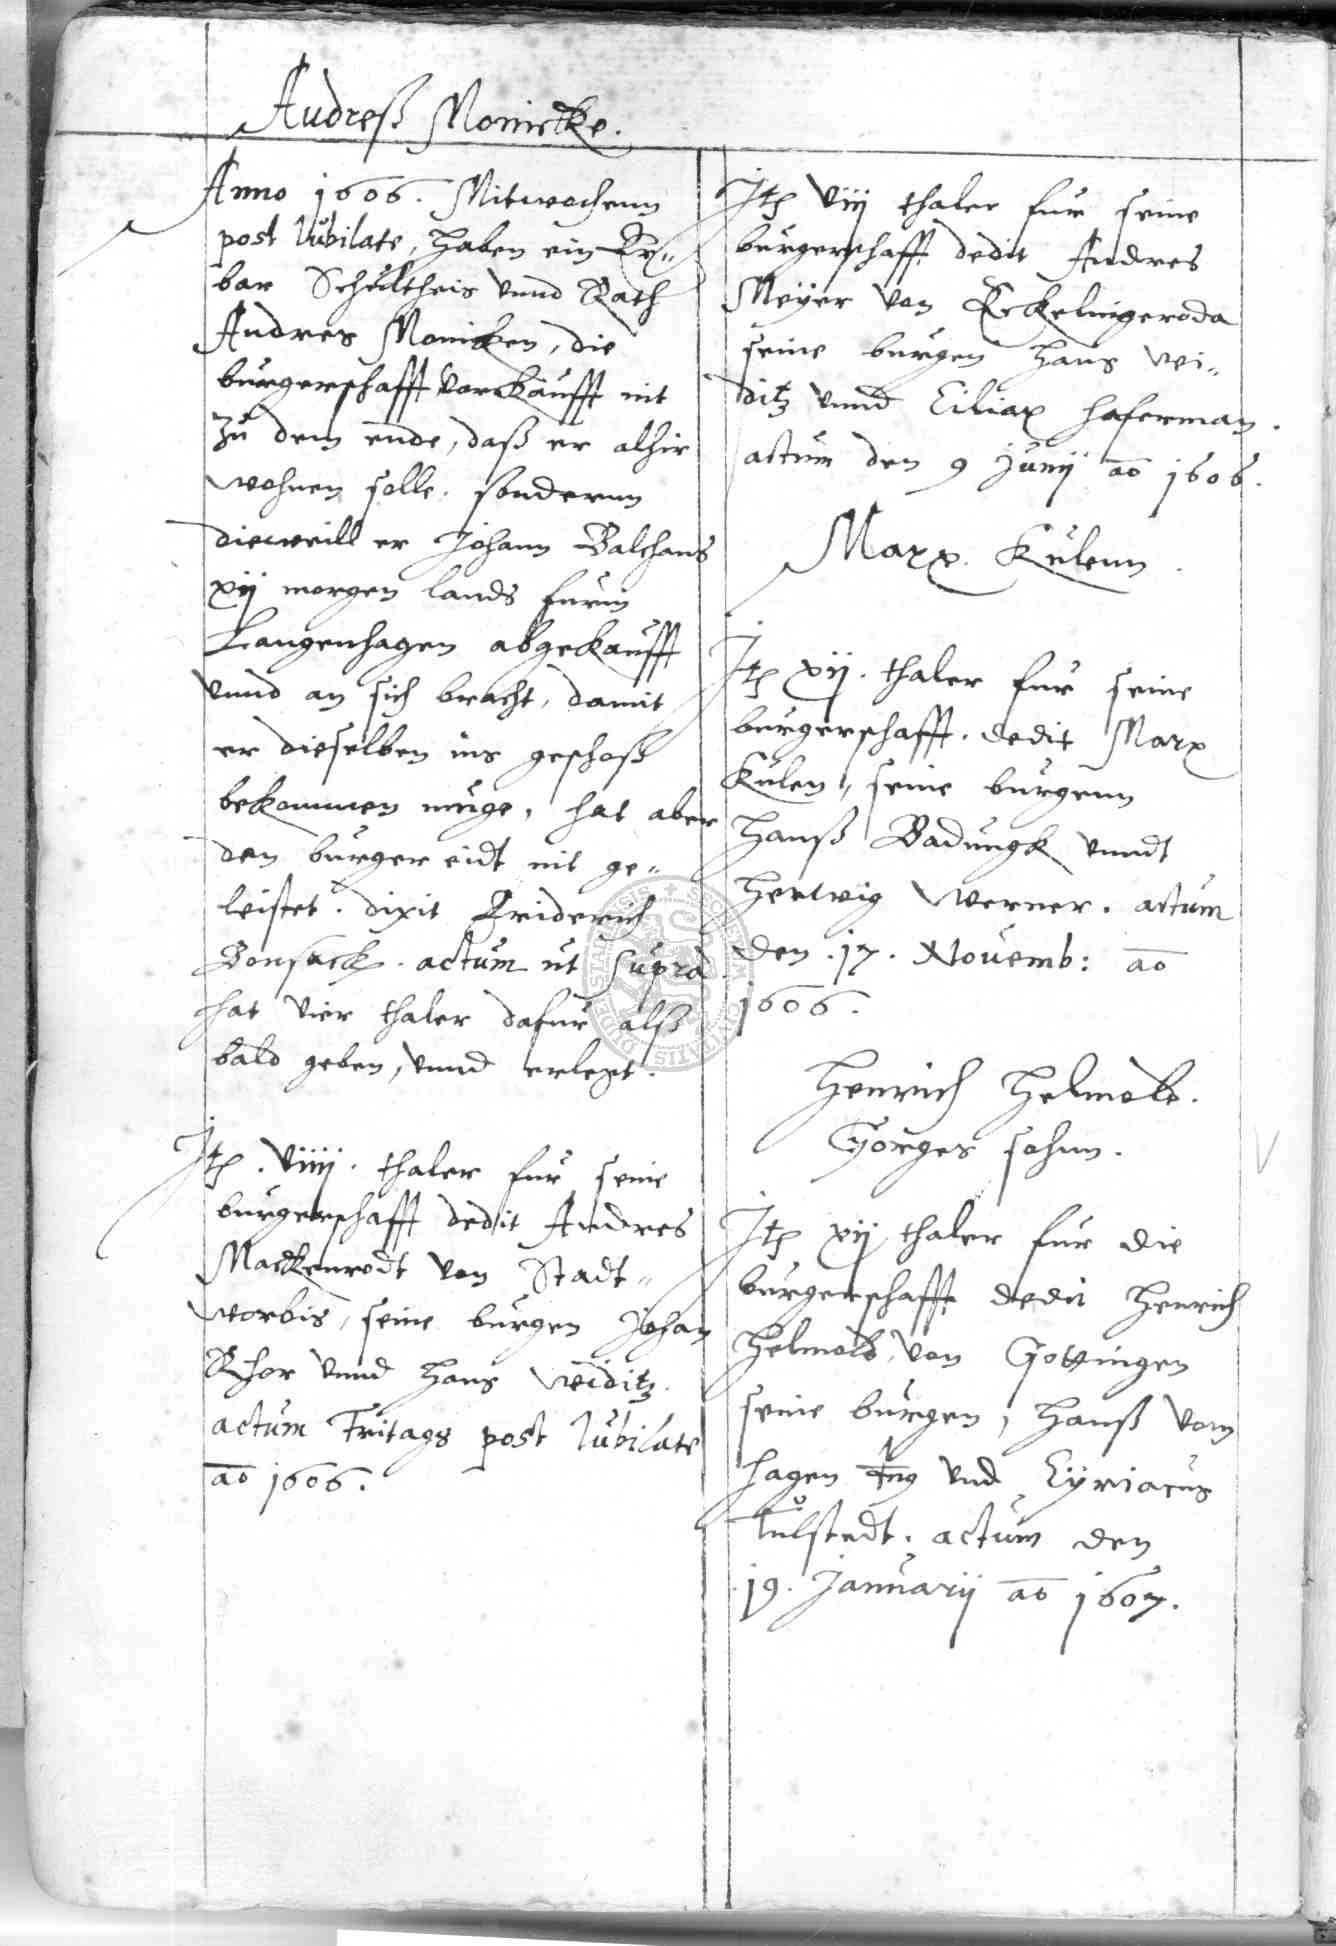 Andreß Monicke.
Anno 1606. Mitwochenn
post Iubilate, haben ein Er„
bar Schultheis vnnd Rath
Andres Monicken, die
burgerschafft vorkaufft nit
zu dem ende, daß er alhir
wohnen solle, sondernn
dieweill er Johann Balthans
xij morgen lands furm
Langenhagen abgekaufft
vnnd an sich bracht, damit
er dieselben ins geschoß
bekommen muge, hat aber
den burger eidt nit ge„
leistet. dixit Friderich
Bonsack. actum ut supra.
hat vier thaler dafur alß
bald geben, vnnd erlegt.
Itm. viiij. thaler fur seine
burgerschafft dedit Andres
Mackenrodt von Stadt„
worbis, seine burgen Johan
Rhor vnnd Hans Widitz.
actum Fritags post Iubilate
ao 1606.
Itm viij thaler fur seine
burgerschafft dedit Andres
Meyer von Eckelingeroda
seine burgen Hans Wi„
ditz vnnd Ciliax Haferman.
actum den 9 Junij ao 1606.
Marx Kulenn.
Itm xij. thaler fur seine
burgerschafft. dedit Marx
Kulen, seine burgenn
Hanß Badungk vnndt
Hertwig Werner. actum
den .17. Novemb: ao
1606.
Henrich Helmold.
Gorges sohnn.
Itm xij thaler fur die
burgerschafft dedit Henrich
Helmold, von Gottingen
seine burgen, Hanß vom
Hagen vnd Cyriacus
Tulstedt. actum den
.19. Januarij ao 1607.